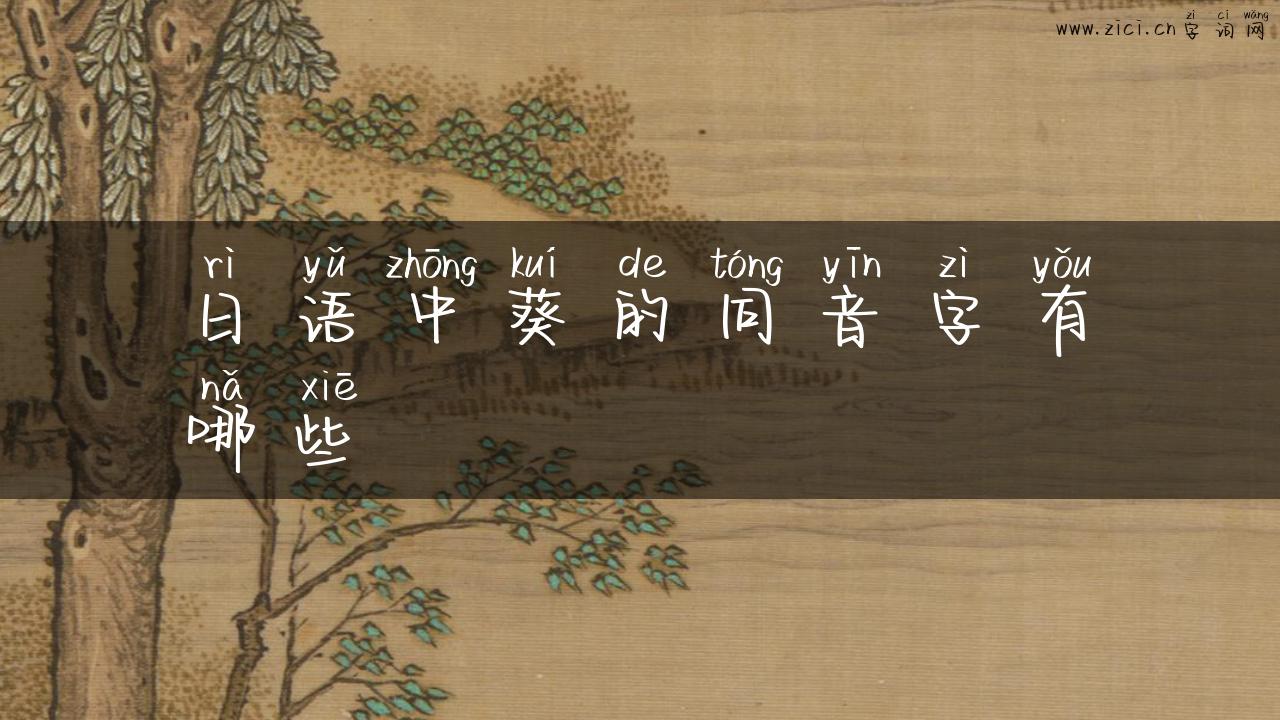 zì cí wǎng
www.zici.cn 字词网
rì yǔ zhōng kuí de tóng yīn zì yǒu
日语中葵的同音字有
nǎ xiē
哪些